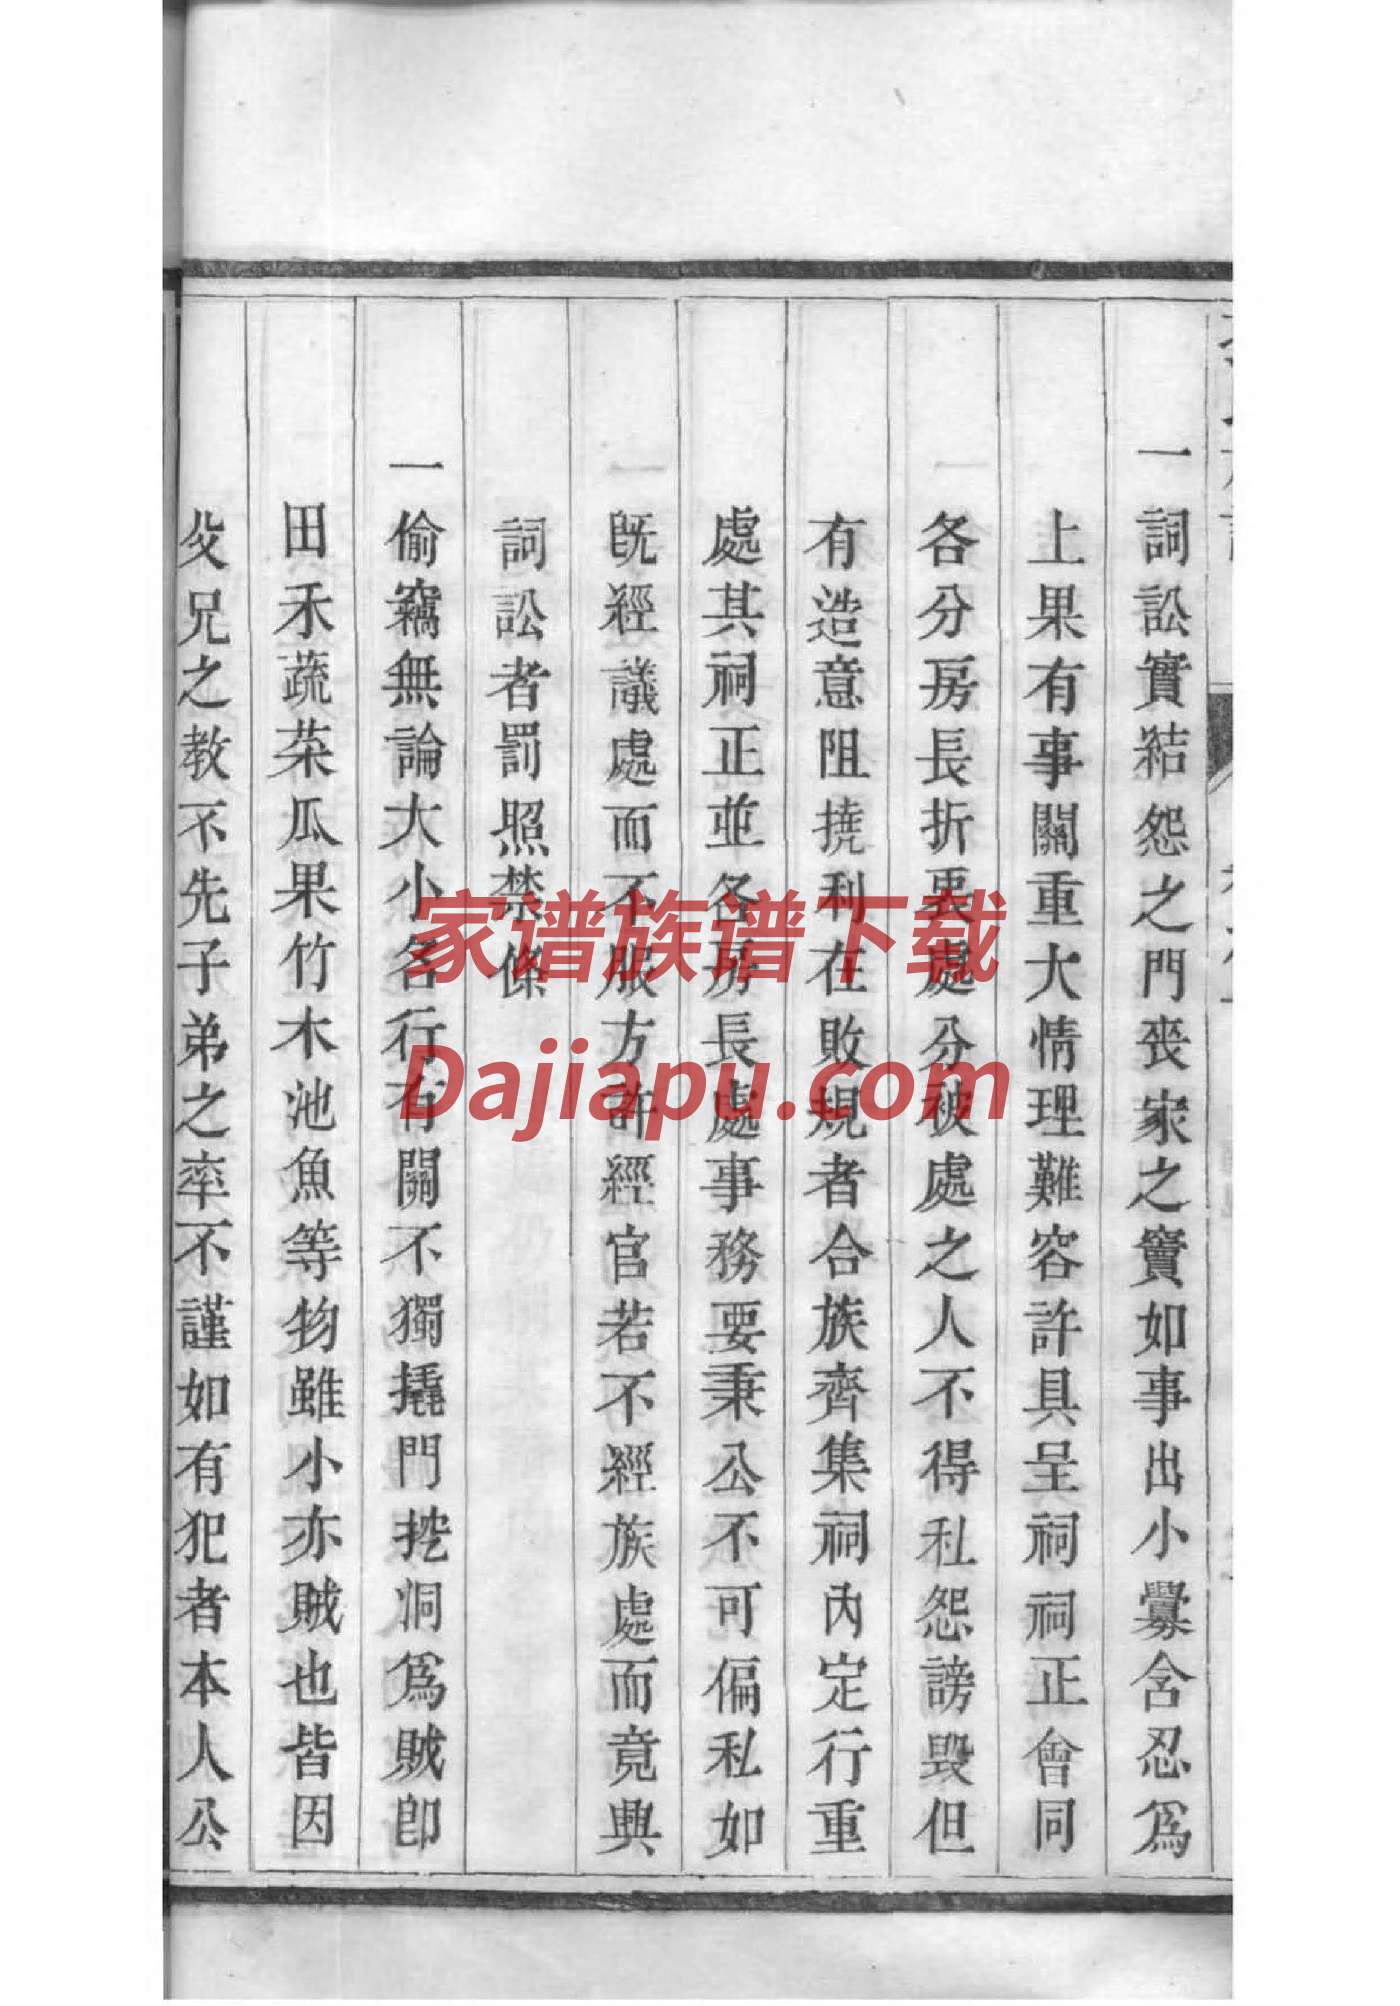 一詞訟實結怨之門喪家之竇如事出小釁含忍爲
上果有事關重大情理難容許具呈祠祠正會同
各分房長折衷處分被處之人不得私怨謗毀但
有造意阻撓利在敗規者合族齊集祠內定行重
處其祠正並各房長處事務要秉公不可偏私如
旣經議處而不服方許經官若不經族處而竟興
詞訟者罰照禁條
一偷竊無論大小名行有關不獨撬門挖洞爲賊卽
田禾蔬菜瓜果竹木池魚等物雖小亦賊也皆因
父兄之教不先子弟之率不謹如有犯者本人公
家谱族谱下载
Dajiapu.com